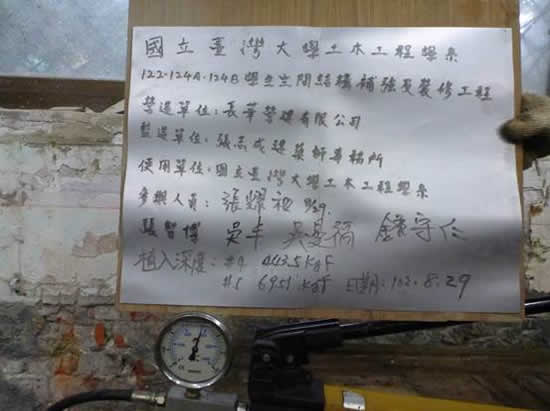 國立臺灣大學土木工程學系
122.124A.124B學生空間結構補強及裝修工程
營造單位:長華營建有限公司
監造單位:張志成建築師事務所
使用單位:國立臺灣大學土木工程學系
參與人員:張 8/29.
張智傑 吳丰 鍾守仁
植入深度:#4 4435kgF
#5 6951.kgF 日期:102.8.29